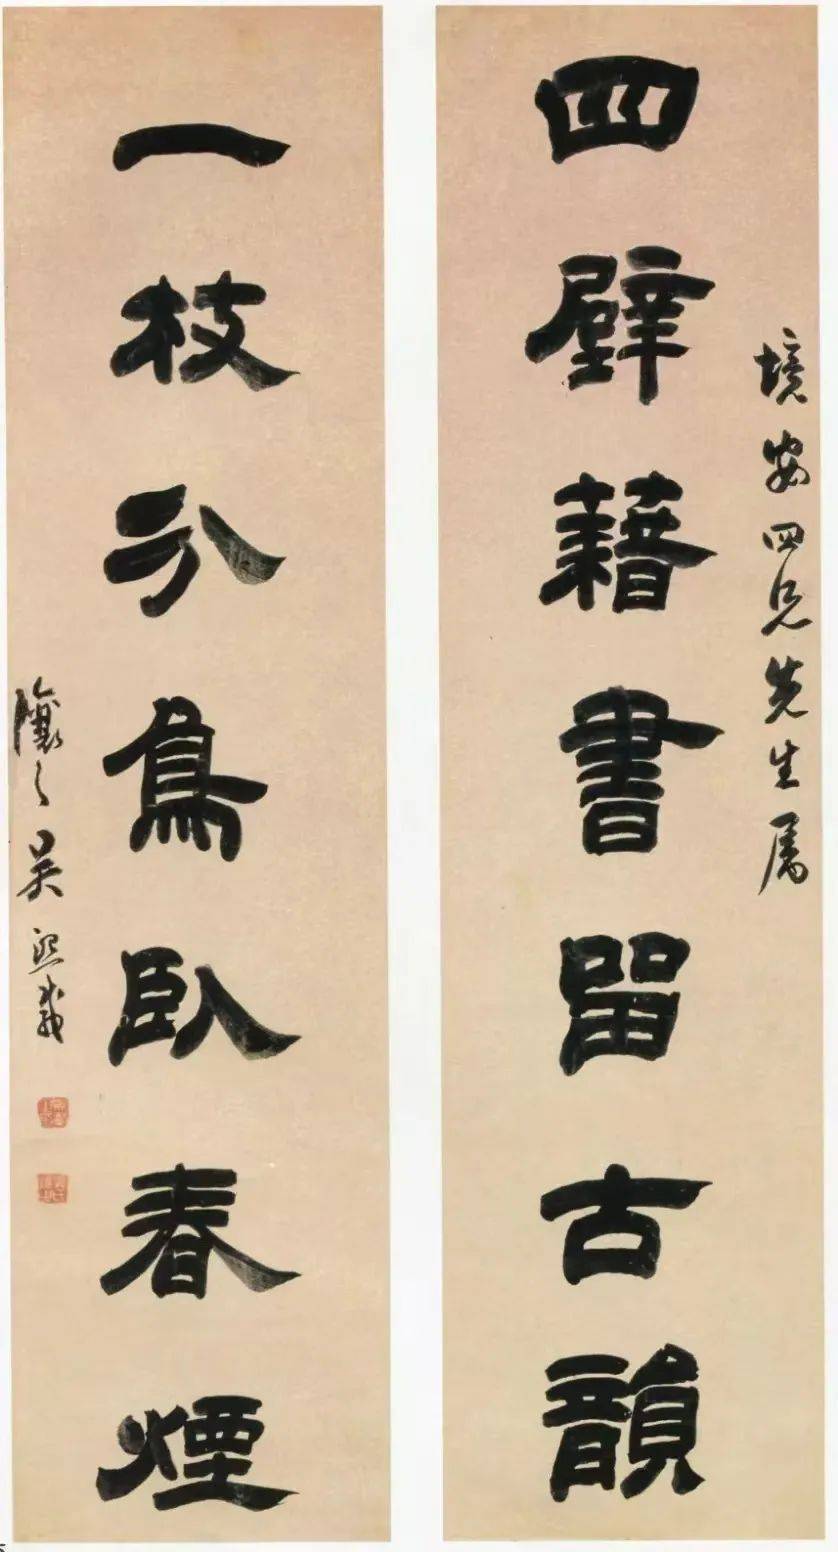 境安四兄先生屬
四壁藉書留古韻
一枝分鳥臥春煙
讓之吳熙載